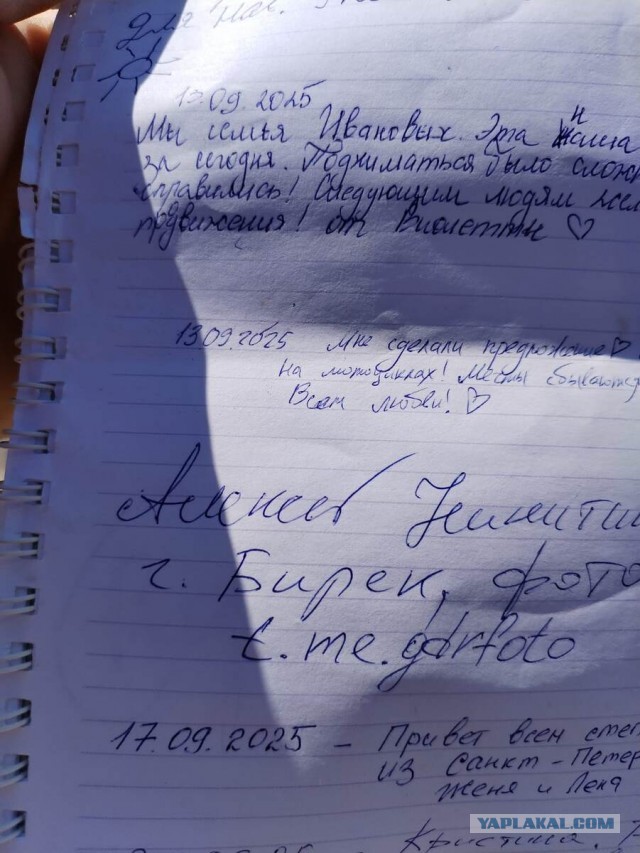 Для нас.
13.09.2025
Мы семья Ивановых. Эта
за сегодня. Подниматься было слож
справились! Следующим людям жел
продвижения! от Виолетты ♡
13.09.2025 Мне сделали предложение ♡
на мотоциклах! Мечты сбываются
Всем любви! ♡
Алексей Никитин
г. Бирск, фото
t.me.gdrfoto
17.09.2025 - Привет всем
из Санкт-Петер
Женя и Лена
Кристина.
YAPLAKAL.COM